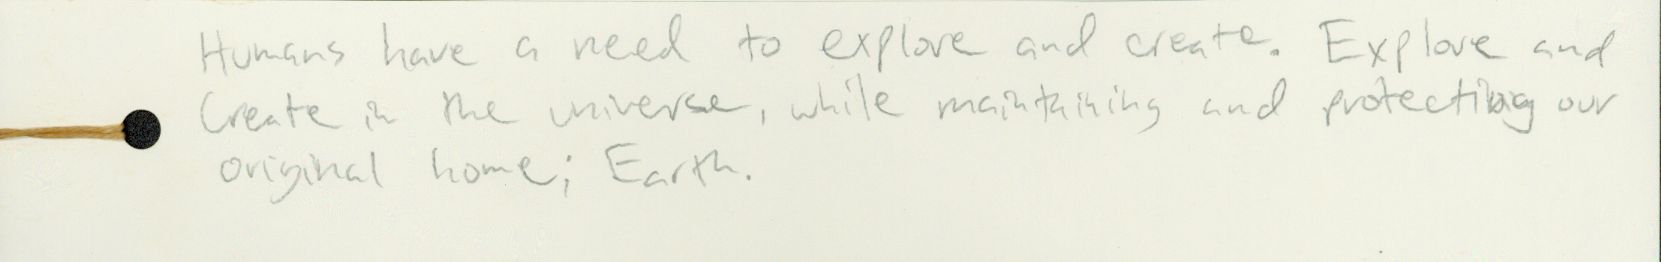 Humans have a need to explore and create. Explore and
Create in the universe, while maintaining and protecting our
original home; Earth.